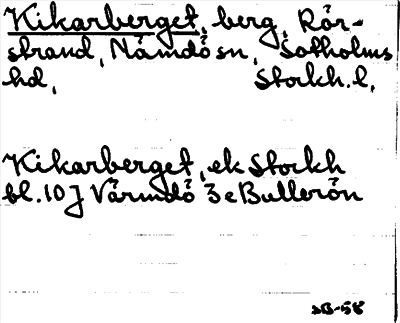 Kikarberget, berg, Rör-
strand, Nämdö sn, Sotholms
hd, Stockh. l,
Kikarberget, ek Stockh
bl. 10 J Värmdö 3 e Bullerön
SB-58